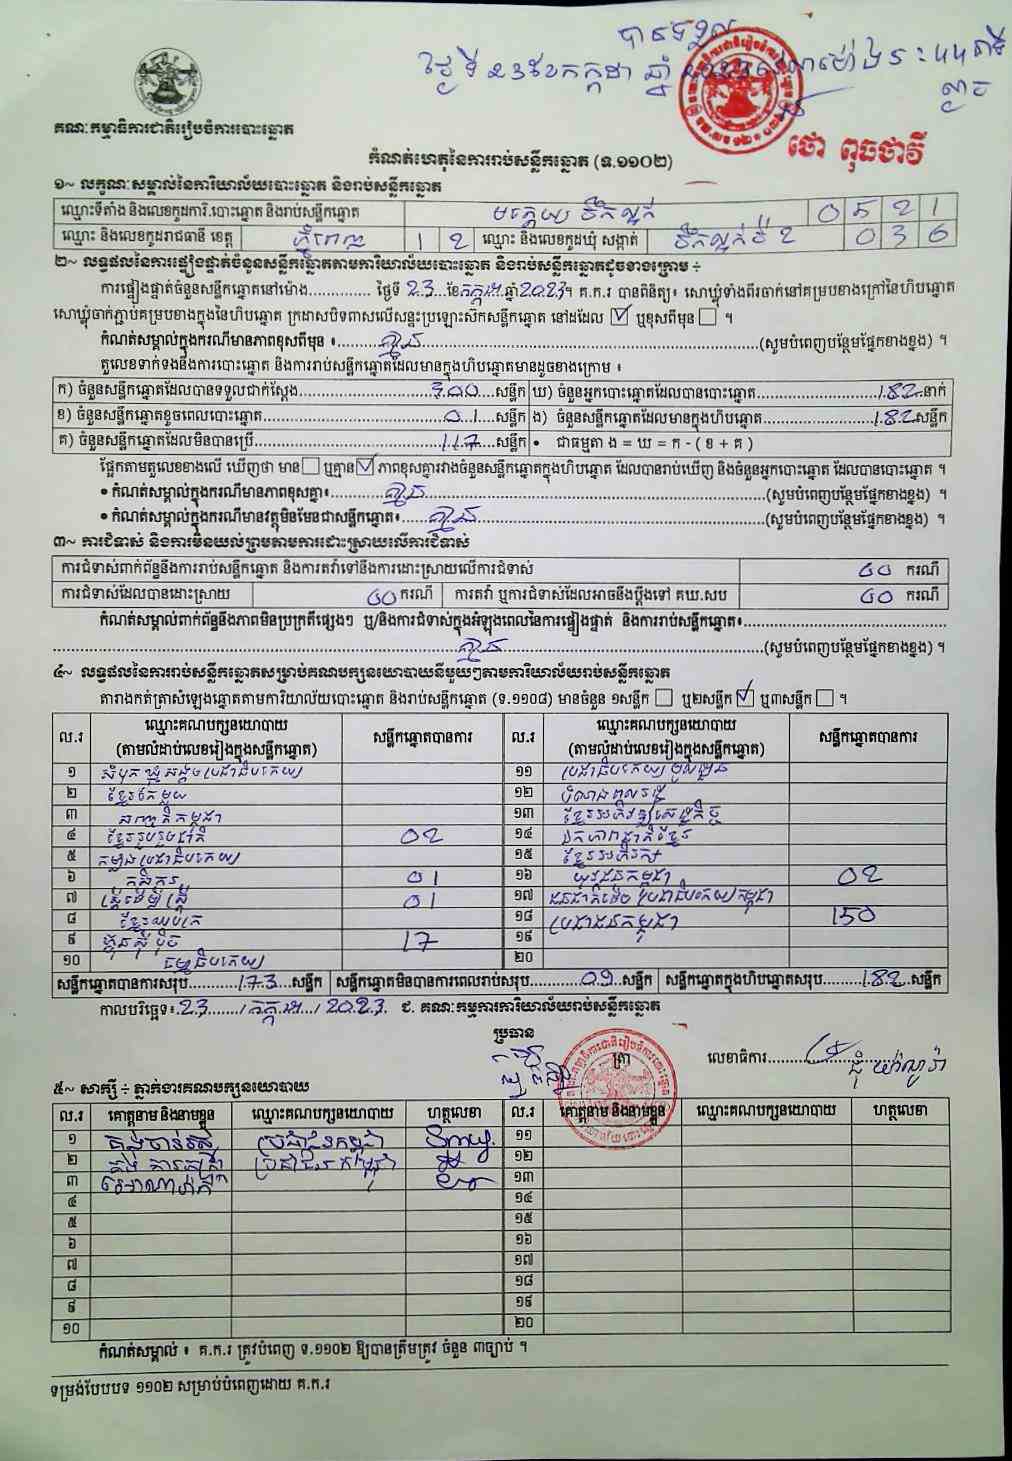 បានទទួល
ថ្ងៃទី ២៣ ខែកក្កដា ឆ្នាំ
ថោ ពុធថាវី
គណៈកម្មាធិការជាតិរៀបចំការបោះឆ្នោត
កំណត់ហេតុនៃការរាប់សន្លឹកឆ្នោត (ទ.១១០២)
១~ លក្ខណៈសម្គាល់នៃការិយាល័យបោះឆ្នោត និងរាប់សន្លឹកឆ្នោត
ឈ្មោះទីតាំង និងលេខកូដការិ.បោះឆ្នោត និងរាប់សន្លឹកឆ្នោត មត្តេយ្យ ទឹកល្អក់ 0521
ឈ្មោះ និងលេខកូដរាជធានី ខេត្ត ភ្នំពេញ 12 ឈ្មោះ និងលេខកូដឃុំ សង្កាត់ ទឹកល្អក់ទី 2 036
២~ លទ្ធផលនៃការផ្ទៀងផ្ទាត់ចំនួនសន្លឹកឆ្នោតតាមការិយាល័យបោះឆ្នោត និងរាប់សន្លឹកឆ្នោតដូចខាងក្រោម ÷
ការផ្ទៀងផ្ទាត់ចំនួនសន្លឹកឆ្នោតនៅម៉ោង.............. ថ្ងៃទី 23 ខែកក្កដា ឆ្នាំ2023។ គ.ក.រ បានពិនិត្យ៖ សោឃ្លុំទាំងពីរចាក់នៅគម្របខាងក្រៅនៃហិបឆ្នោត
សោឃ្លុំចាក់ភ្ជាប់គម្របខាងក្នុងនៃហិបឆ្នោត ក្រដាសបិទពាសលើសន្ទះប្រឡោះស៊កសន្លឹកឆ្នោត នៅដដែល ☑ ឬខុសពីមុន ☐ ។
កំណត់សម្គាល់ក្នុងករណីមានភាពខុសពីមុន ៖ គ្មាន (សូមបំពេញបន្ថែមផ្នែកខាងខ្នង) ។
តួលេខទាក់ទងនឹងការបោះឆ្នោត និងការរាប់សន្លឹកឆ្នោតដែលមានក្នុងហិបឆ្នោតមានដូចខាងក្រោម ៖
ក) ចំនួនសន្លឹកឆ្នោតដែលបានទទួលជាក់ស្តែង 300 សន្លឹក ឃ) ចំនួនអ្នកបោះឆ្នោតដែលបានបោះឆ្នោត 182 នាក់
ខ) ចំនួនសន្លឹកឆ្នោតខូចពេលបោះឆ្នោត 01 សន្លឹក ង) ចំនួនសន្លឹកឆ្នោតដែលមានក្នុងហិបឆ្នោត 182 សន្លឹក
គ) ចំនួនសន្លឹកឆ្នោតដែលមិនបានប្រើ 117 សន្លឹក • ជាធម្មតា ង = ឃ = ក - ( ខ + គ )
ផ្អែកតាមតួលេខខាងលើ ឃើញថា មាន ☐ ឬគ្មាន ☑ ភាពខុសគ្នារវាងចំនួនសន្លឹកឆ្នោតក្នុងហិបឆ្នោត ដែលបានរាប់ឃើញ និងចំនួនអ្នកបោះឆ្នោត ដែលបានបោះឆ្នោត ។
• កំណត់សម្គាល់ក្នុងករណីមានភាពខុសគ្នា៖ គ្មាន (សូមបំពេញបន្ថែមផ្នែកខាងខ្នង) ។
• កំណត់សម្គាល់ក្នុងករណីមានវត្ថុមិនមែនជាសន្លឹកឆ្នោត៖ គ្មាន (សូមបំពេញបន្ថែមផ្នែកខាងខ្នង) ។
៣~ ការជំទាស់ និងការមិនយល់ព្រមតាមការដោះស្រាយលើការជំទាស់
ការជំទាស់ពាក់ព័ន្ធនឹងការរាប់សន្លឹកឆ្នោត និងការតវ៉ាទៅនឹងការដោះស្រាយលើការជំទាស់ 00 ករណី
ការជំទាស់ដែលបានដោះស្រាយ 00 ករណី ការតវ៉ា ឬការជំទាស់ដែលអាចនឹងប្តឹងទៅ គឃ.សប 00 ករណី
កំណត់សម្គាល់ពាក់ព័ន្ធនឹងភាពមិនប្រក្រតីផ្សេងៗ ឬ/និងការជំទាស់ក្នុងអំឡុងពេលនៃការផ្ទៀងផ្ទាត់ និងការរាប់សន្លឹកឆ្នោត៖
គ្មាន (សូមបំពេញបន្ថែមផ្នែកខាងខ្នង) ។
៤~ លទ្ធផលនៃការរាប់សន្លឹកឆ្នោតសម្រាប់គណបក្សនយោបាយនីមួយៗតាមការិយាល័យរាប់សន្លឹកឆ្នោត
តារាងកត់ត្រាសំឡេងឆ្នោតតាមការិយាល័យបោះឆ្នោត និងរាប់សន្លឹកឆ្នោត (ទ.១១០៨) មានចំនួន ១សន្លឹក ☐ ឬ២សន្លឹក ☑ ឬ៣សន្លឹក ☐ ។
ល.រ ឈ្មោះគណបក្សនយោបាយ (តាមលំដាប់លេខរៀងក្នុងសន្លឹកឆ្នោត) សន្លឹកឆ្នោតបានការ ល.រ ឈ្មោះគណបក្សនយោបាយ (តាមលំដាប់លេខរៀងក្នុងសន្លឹកឆ្នោត) សន្លឹកឆ្នោតបានការ
១ សំបុកឃ្មុំសង្គមប្រជាធិបតេយ្យ ១១ ប្រជាធិបតេយ្យមូលដ្ឋាន
២ ខ្មែរតែមួយ ១២
៣ សញ្ជាតិកម្ពុជា ១៣ ខ្មែរអភិវឌ្ឍសេដ្ឋកិច្ច
៤ ខ្មែររួបរួមជាតិ 02 ១៤ ឯកភាពជាតិខ្មែរ
៥ កម្លាំងប្រជាធិបតេយ្យ ១៥ ខ្មែរអភិរក្ស
៦ កសិករ 01 ១៦ យុវជនកម្ពុជា 02
៧ ស្ត្រីដើម្បីស្ត្រី 01 ១៧ ជនជាតិដើមប្រជាធិបតេយ្យកម្ពុជា
៨ ខ្មែរឈប់ក្រ ១៨ ប្រជាជនកម្ពុជា 150
៩ ហ្វ៊ុនស៊ិនប៉ិច 17 ១៩
១០ ធម្មាធិបតេយ្យ ២០
សន្លឹកឆ្នោតបានការសរុប 173 សន្លឹក សន្លឹកឆ្នោតមិនបានការពេលរាប់សរុប 09 សន្លឹក សន្លឹកឆ្នោតក្នុងហិបឆ្នោតសរុប 182 សន្លឹក
កាលបរិច្ឆេទ៖ 23 / កក្កដា / 2023 ជ. គណៈកម្មការការិយាល័យរាប់សន្លឹកឆ្នោត
ប្រធាន
ត្រា លេខាធិការ
៥~ សាក្សី ÷ ភ្នាក់ងារគណបក្សនយោបាយ
ល.រ គោត្តនាម និងនាមខ្លួន ឈ្មោះគណបក្សនយោបាយ ហត្ថលេខា ល.រ គោត្តនាម និងនាមខ្លួន ឈ្មោះគណបក្សនយោបាយ ហត្ថលេខា
១ ប្រជាជនកម្ពុជា ១១
២ ប្រជាជនកម្ពុជា ១២
៣ ១៣
៤ ១៤
៥ ១៥
៦ ១៦
៧ ១៧
៨ ១៨
៩ ១៩
១០ ២០
កំណត់សម្គាល់ ៖ គ.ក.រ ត្រូវបំពេញ ទ.១១០២ ឱ្យបានត្រឹមត្រូវ ចំនួន ៣ច្បាប់ ។
ទម្រង់បែបបទ ១១០២ សម្រាប់បំពេញដោយ គ.ក.រ